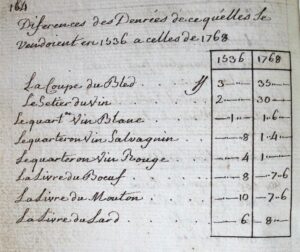 164
Diferences des Denrées de ce quélles se
Vendoient en 1536 a celles de 1768
1536 1768
La Coupe du Bled . . . ff 3 — 35 —
Le Setier du Vin . . . 2 — 30 —
Le quart.ⁿ Vin Blanc . . . — 1 — — 1 - 6
Le quarteron Vin Salvagnin . . . — 8 4 —
Le quarteron Vin Rouge . . . — 4 1 —
La Livre du Boeuf . . . — 8 — 7 - 6
La Livre du Mouton . . . — 10 — 7 - 6
La Livre du Lard . . . — 6 — 8 —